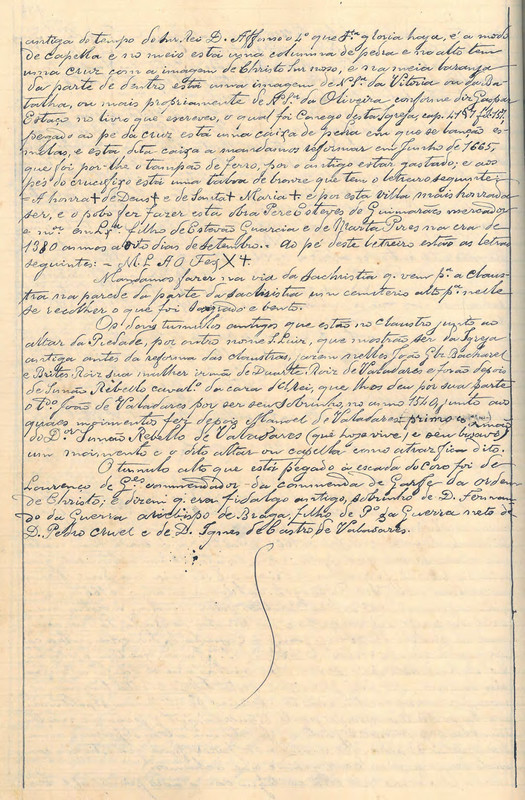 antiga do tempo do Snr. Rei D. Affonso o 4º que S.ta gloria haja, é a modo
de capella e no meio está uma columna de pedra e no alto tem
uma cruz com a imagem de Christo Snr. nosso, e na meia laranja
da parte de dentro está uma imagem de N. Sr.ª da Vitoria ou da Ba-
talha, ou mais propriamente de N. Sr.ª da Oliveira, conforme diz Gaspar
Estaço no livro que escreveu, o qual foi Conego desta Igreja, cap.
pegado ao pé da cruz está uma caixa de pedra em que se lanção es-
molas, e esta dita caixa a mandamos reformar em Junho de 1665,
que foi por-lhe o tampão de ferro, por o antigo estar gastado; e aos
pés do crucifixo está uma taboa de bronze que tem o letreiro seguinte:
A honra † de Deus † e de Santa † Maria † e por esta villa mais honrada
ser, e o pobo fez fazer esta obra Pere Esteves de Guimarães mercador
e filho de Estevão Guarcia e de Marta Pires na era de
1380 annos aoito dias de setembro. Ao pé deste letreiro estão as letras
seguintes: - M. L. A O Fez X +
Mandamos fazer na via da sachristia q. vem p.ª a claus-
tra na parede da parte da sachristia um cemiterio alto p.ª nelle
se recolher o que foi sagrado e bento.
Os dous tumulos antigos que estão no claustro junto ao
altar da Piedade, por outro nome S. Luiz, que mostrão ser da Igreja
antiga antes da reforma das claustras, jazem nelles João Glz. Bacharel
e Brites Roiz sua mulher irmã de Duarte Roiz de Valadares e forão depois
de Simão Rebello caval.º da caza del Rei, que lhos deu por sua parte
João de Valadares por ser seu sobrinho, no anno 1540, junto ao
quaes moimento fez depois Manoel de Valadares primo co irmão
do D.or Simão Rebello de Valadares (que hoje vive) e seu bisavô
um moimento e o dito altar ou capella como atraz fica dito.
O tumulo alto que está pegado à escada do coro foi de
Lourenço de commendador da commenda de Garfe da ordem
de Christo; e dizem q. era fidalgo antigo, sobrinho de D. Fernan-
do da Guerra arcebispo de Braga, filho de P.º da Guerra neto de
D. Pedro Cruel e de D. Ignes de Castro de Valadares.